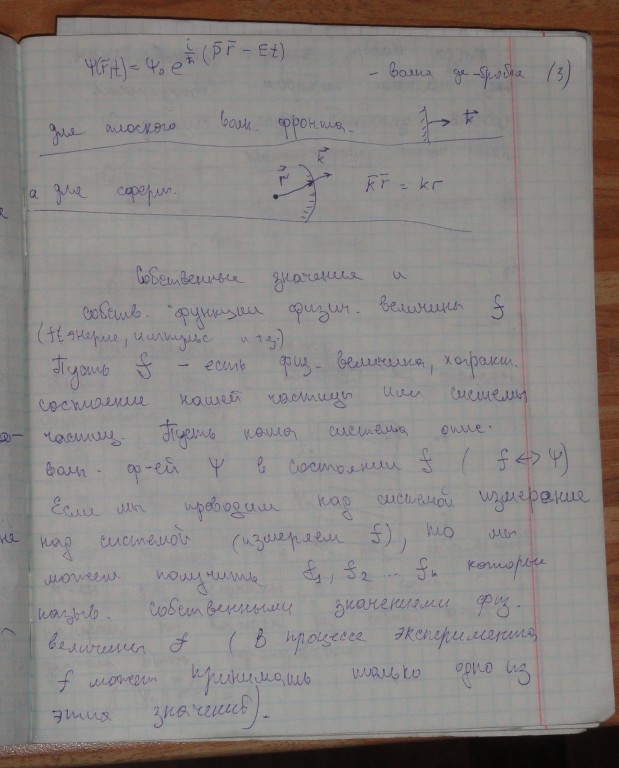 Ψ(r̄,t) = Ψ₀ e^{i/ħ (p̄r̄ - Et)} - волна де-Бройля (3)
для плоского волн. фронта. k⃗
а для сферич. r⃗ k⃗ k̄r̄ = kr
Собственные значения и
собств. функции физич. величины f
(f ∈ энергие, импульс и т.д.)
Пусть f - есть физ. величина, характ.
состояние нашей частицы или системы
частиц. Пусть наша система опис.
волн. ф-ей Ψ в состоянии f ( f ↔ Ψ)
Если мы проводим над системой измерение
над системой (измеряем f), то мы
можем получить f₁, f₂ ... fₙ которые
назыв. собственными значениями физ.
величины f ( В процессе эксперимента
f может принимать только одно из
этих значений).